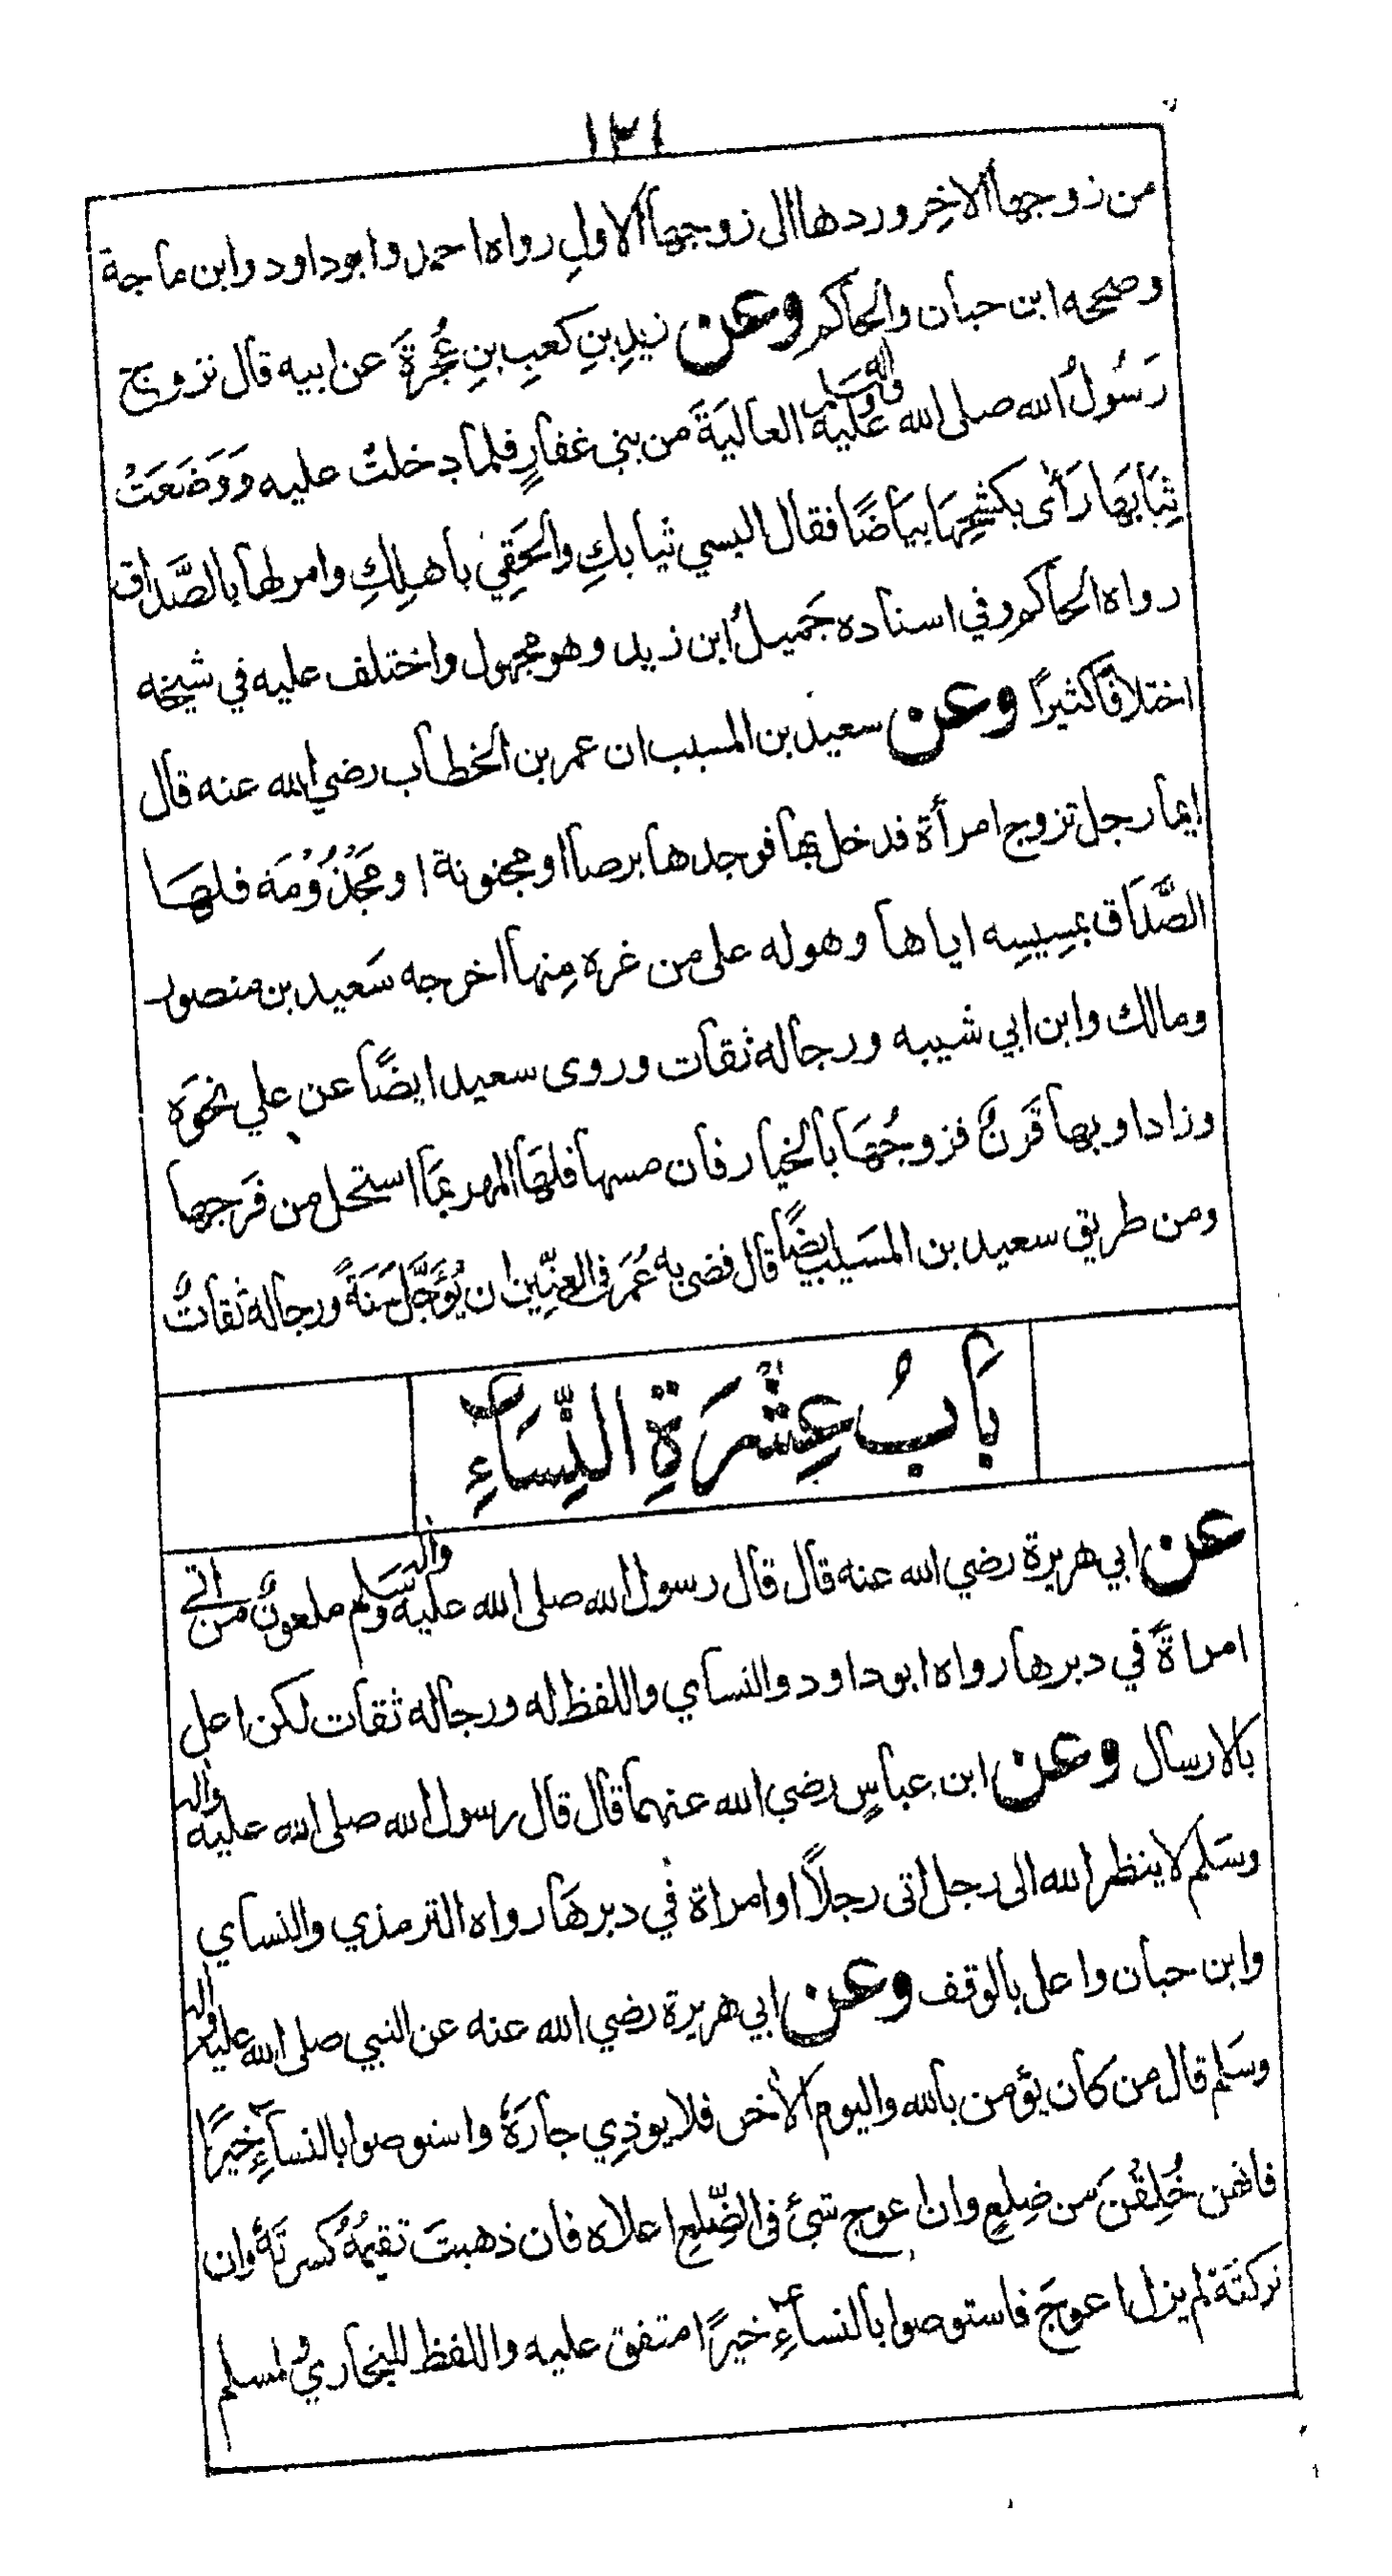 ١٣١
من زوجها الاخِر وردها الى زوجها الاولِ رواه احمد وابوداود وابن ماجة
وصححه ابن حبان والحاكم وعن زيدِ بنِ كعبِ بنِ عُجْرَةَ عن ابيه قال تزوج
رَسُولُ الله صلى الله عليه واله وسلم العاليَةَ من بني غفارٍ فلما دخلتْ عليه وَوَضَعَتْ
ثِيَابَهَا رَأى بكشحِهَا بيَاضًا فقال البسي ثيابكِ والحَقِي باهلِكِ وامر لها بالصَّدَاق
رواه الحاكم وفي اسناده جَميلُ ابن زيد وهو مجهول واختلف عليه في شيخه
اختلافا كثيرًا وعن سعيد بن المسيب ان عمر بن الخطاب رضي الله عنه قال
ايما رجل تزوج امرأة فدخل بها فوجدها برصا او مجنونة او مَجْذُوْمَة فلهَا
الصَّدَاق بمسِيسِه اياها وهوله على من غره مِنها اخرجه سَعيد بن منصور
ومالك وابن ابي شيبه ورجاله ثقات وروى سعيد ايضًا عن علي نحوَه
وزاد اوبها قَرَنٌ فزوجُهَا بالخيار فان مسها فلهَا المهر بمَا استحل من فَرجها
ومن طريق سعيد بن المسَيب ايضًا قال قضى به عُمَر في العِنِّين ان يُؤَجَّلَ سَنَةً ورجاله ثقاتٌ
بَابُ عِشْرَةِ النِّسَاءِ
عن ابي هريرة رضي الله عنه قال قال رسول الله صلى الله عليه واله وسَلم ملعونٌ من اتى
امراةً في دبرها رواه ابوداود والنساي واللفظ له ورجاله ثقات لكن اعل
بالارسال وعن ابن عباسٍ رضي الله عنهما قال قال رسول الله صلى الله عليه واله
وسَلم لا ينظر الله الى رجل اتى رجلاً او امراة في دبرهَا رواه الترمذي والنساي
وابن حبان واعل بالوقف وعن ابي هريرة رضي الله عنه عن النبي صلى الله عليه واله
وسَلم قال من كان يؤمن بالله واليوم الاخر فلا يوذِي جارَهُ واستوصوا بالنساءِ خيرًا
فانهن خُلِقْنَ من ضِلعٍ وان اعوج شئ في الضِّلعِ اعلاه فان ذهبتَ تقيمُهُ كسرتَهُ وان
تركتَهُ لم يزل اعوجَ فاستوصوا بالنساءِ خيرًا متفق عليه واللفظ للبخاري ولمسلم